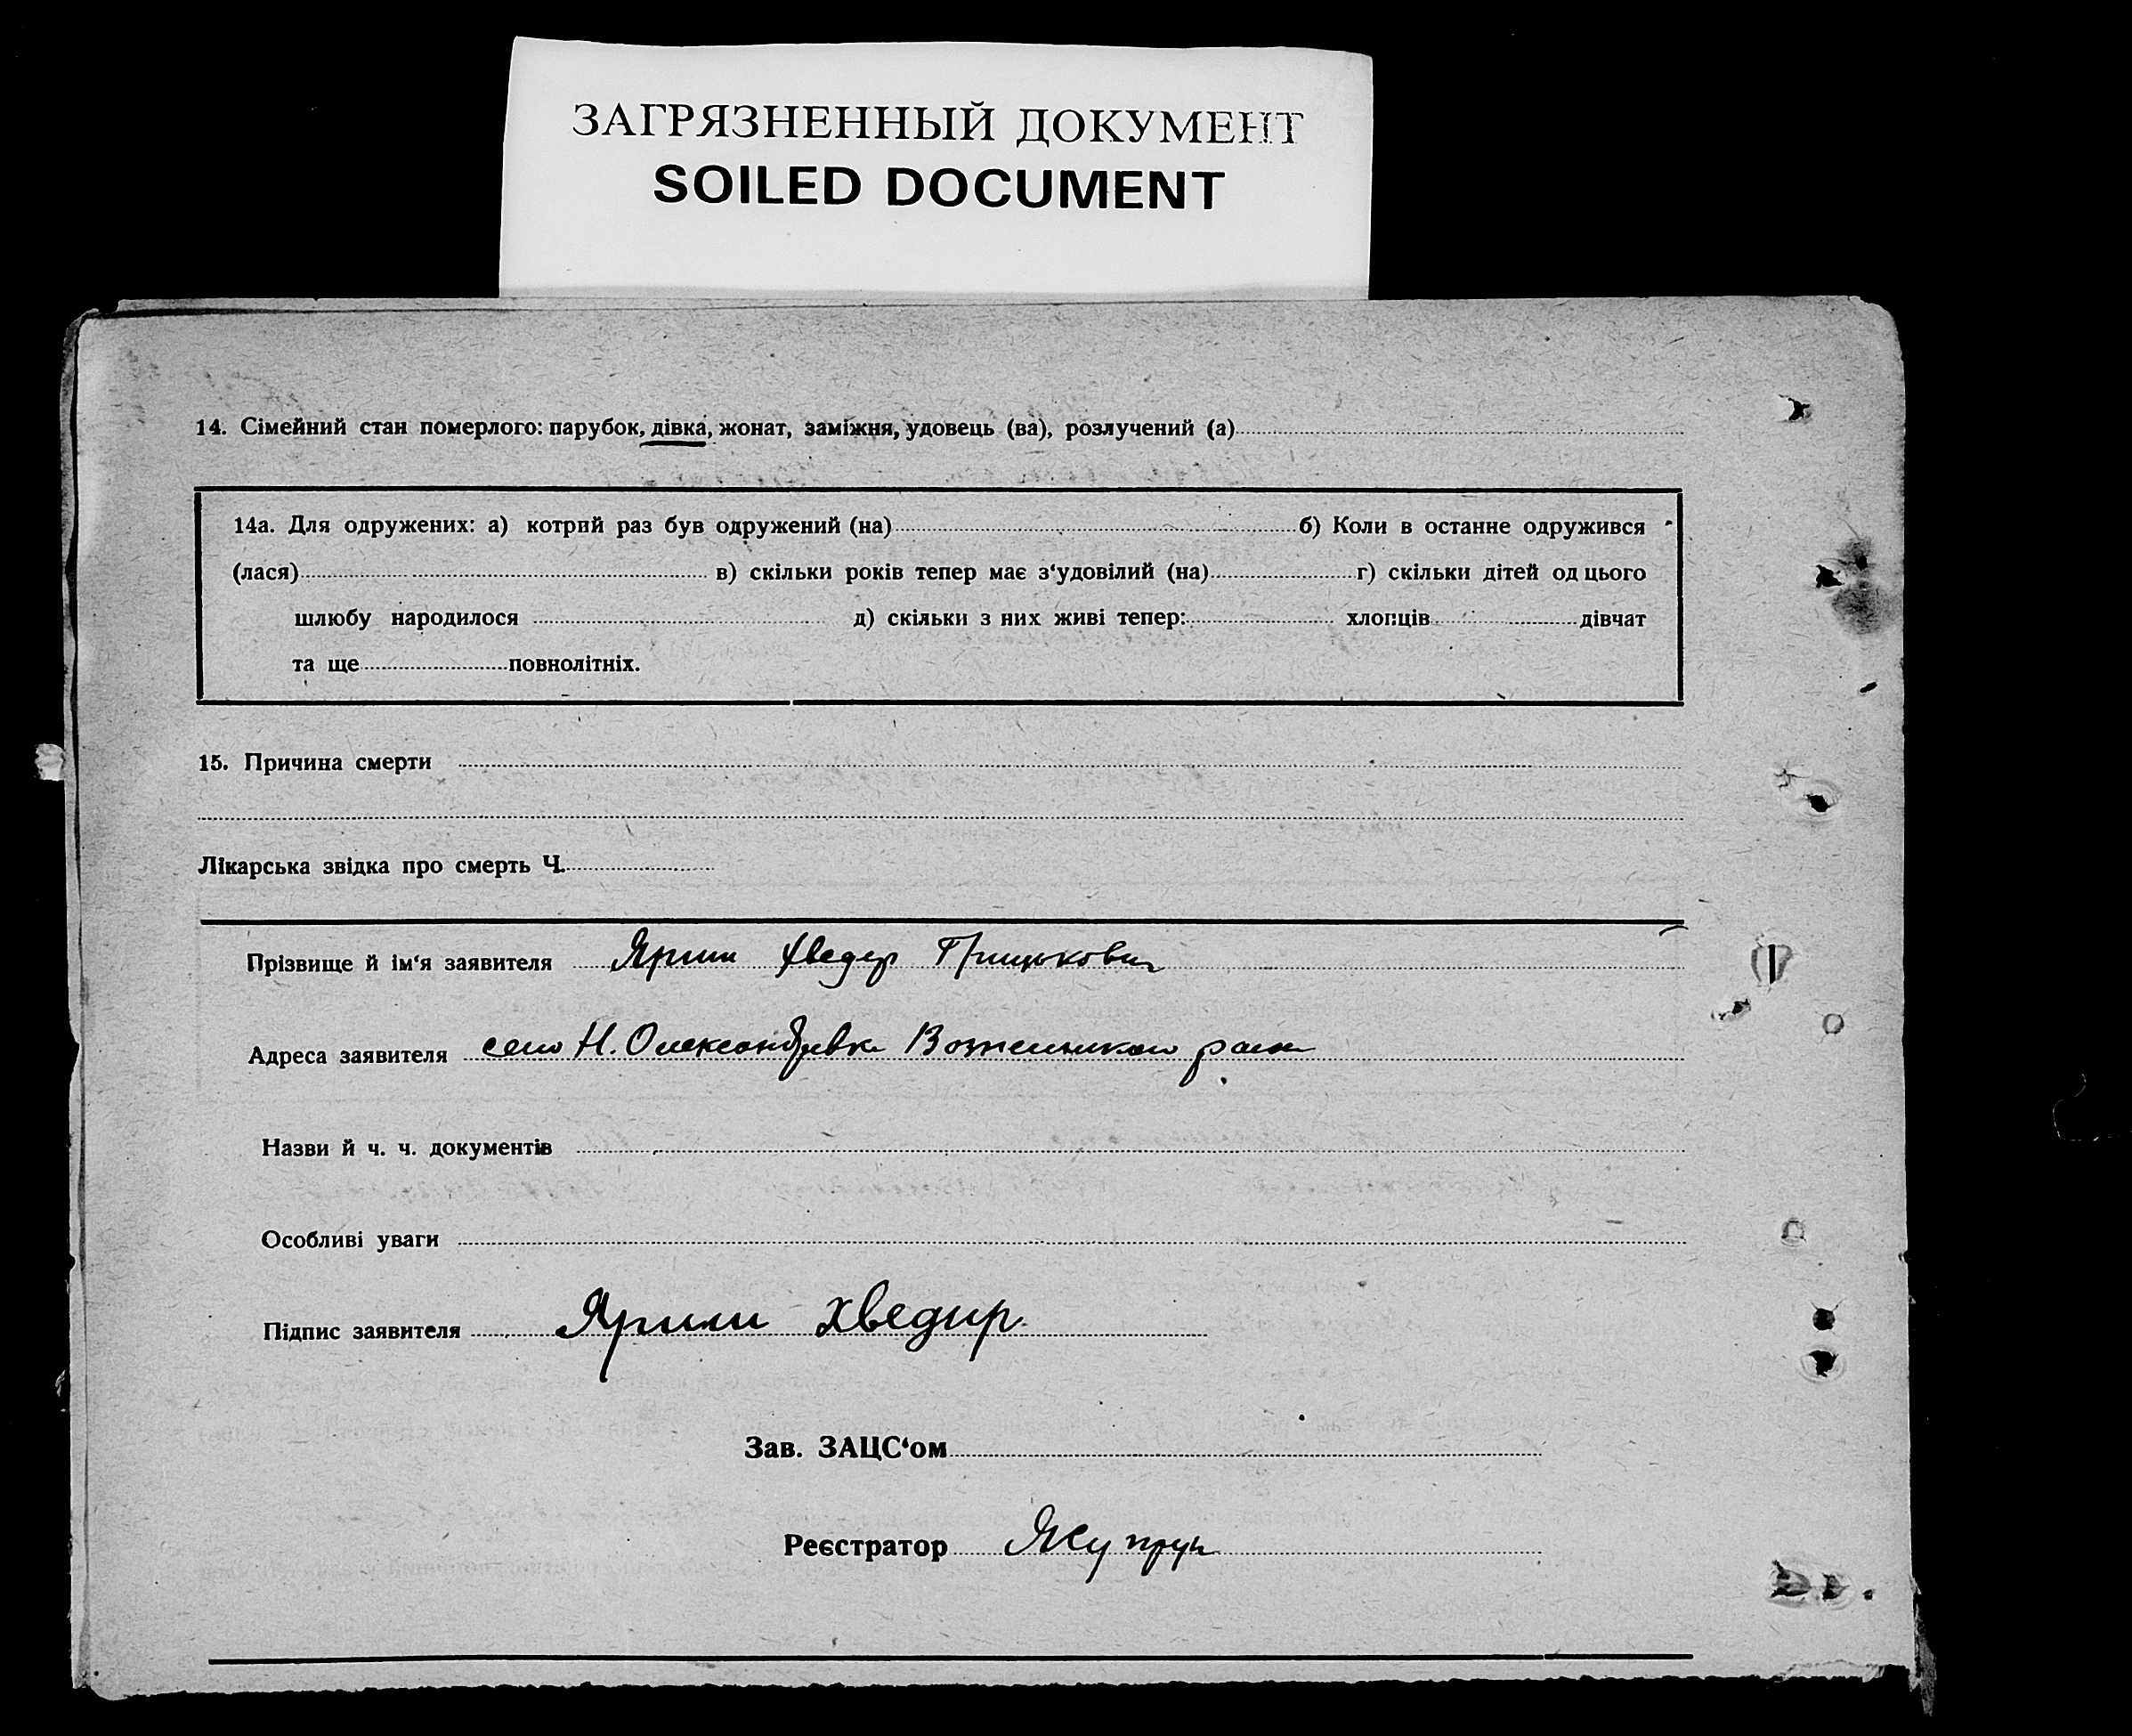 ЗАГРЯЗНЕННЫЙ ДОКУМЕНТ
SOILED DOCUMENT
14. Сімейний стан померлого: парубок, дівка, жонат, заміжня, удовець (ва), розлучений (а)
14а. Для одружених: а) котрий раз був одружений (на) б) Коли в останне одружився
(лася) в) скільки років тепер має з‘удовілий (на) г) скільки дітей од цього
шлюбу народилося д) скільки з них живі тепер: хлопців дівчат
та ще повнолітніх.
15. Причина смерти
Лікарська звідка про смерть Ч.
Прізвище й ім‘я заявителя Хведер Грицькович
Адреса заявителя село Н. Олександрівка
Назви й ч. ч. документів
Особливі уваги
Підпис заявителя Хведир
Зав. ЗАЦС‘ом
Реєстратор